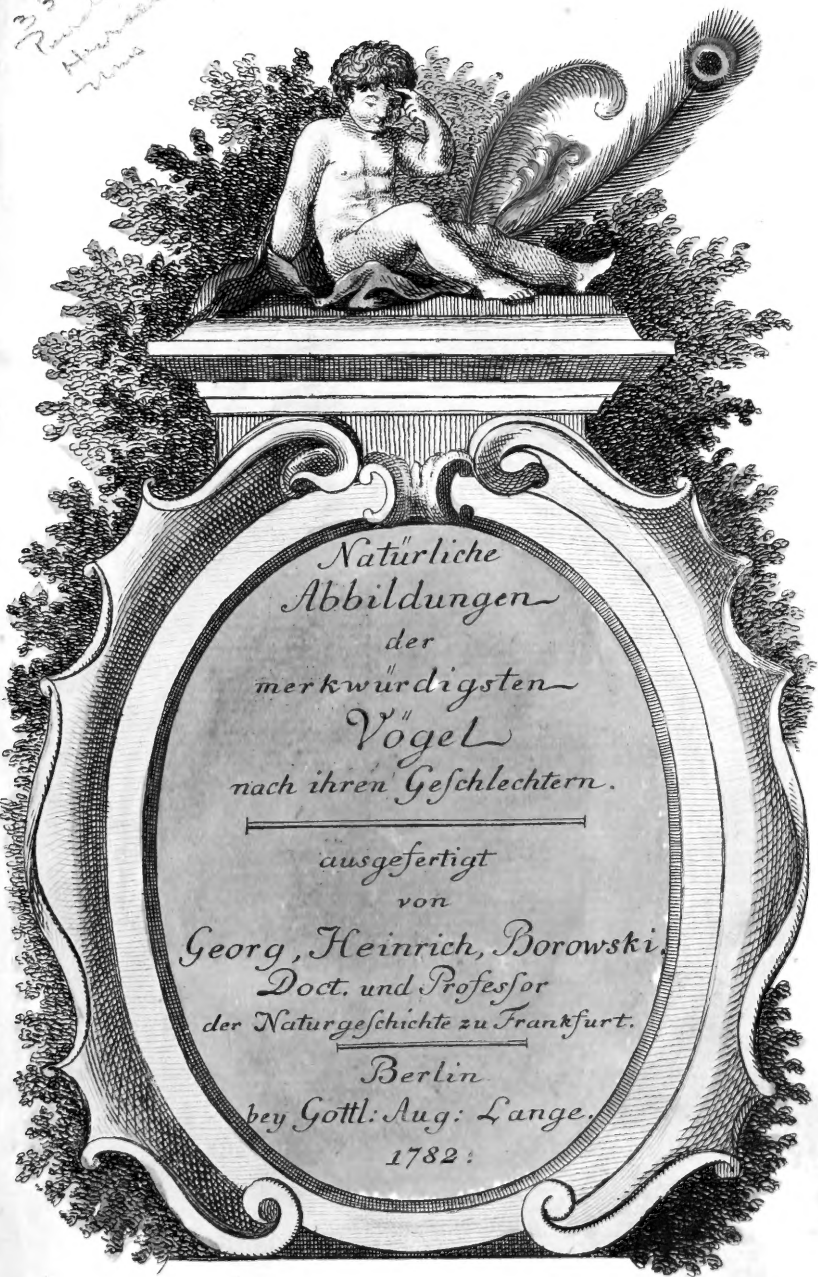 Natürliche
Abbildungen
der
merkwürdigsten
Vögel
nach ihren Geſchlechtern.
ausgefertigt
von
Georg, Heinrich, Borowski.
Doct. und Profeſsor
der Naturgeſchichte zu Frankfurt.
Berlin
bey Gottl: Aug: Lange.
1782.